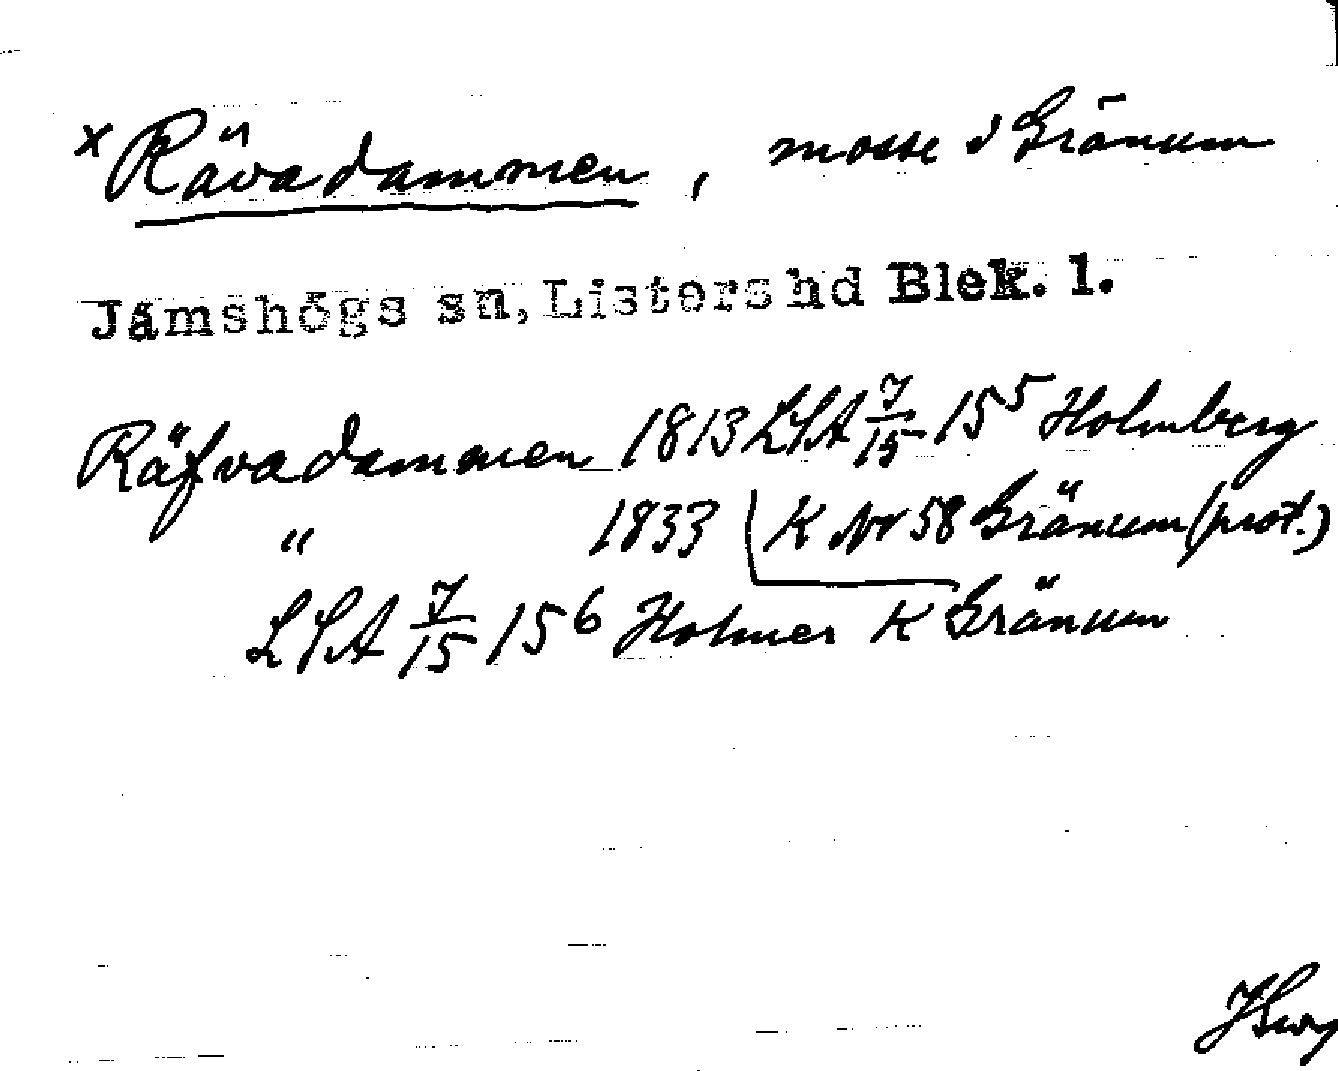 x Rävadammen, mosse i Gränum
Jämshögs sn, Listers hd Blek. l.
Räfvadammen 1813 LSA 7/15 15⁵ Holmberg
" 1833 K Nr 58 Gränum (prot.)
LSA 7/15 15⁶ Holmer K Gränum